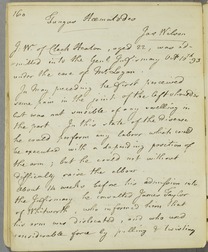 160
Fungus Hæmatodes
Jas Wilson
J. W. of Clack Heaton, aged 22, was ad-
mitted into the Genl. Infirmary Oct. 93
under the care of Mr. Logan.
In May preceding he first perceived
some pain in the joint of the left shoulder
but was not sensible of any swelling in
the part. In this state of the disease
he could perform any labor which could
be executed with a depending position of
the arm; but he could not without
difficulty raise the elbow.
About 14 weeks before his admission into
the Infirmary he consulted James Taylor
of Whitworth, who informed him that
his arm was dislocated, and who used
considerable force by pulling & twisting